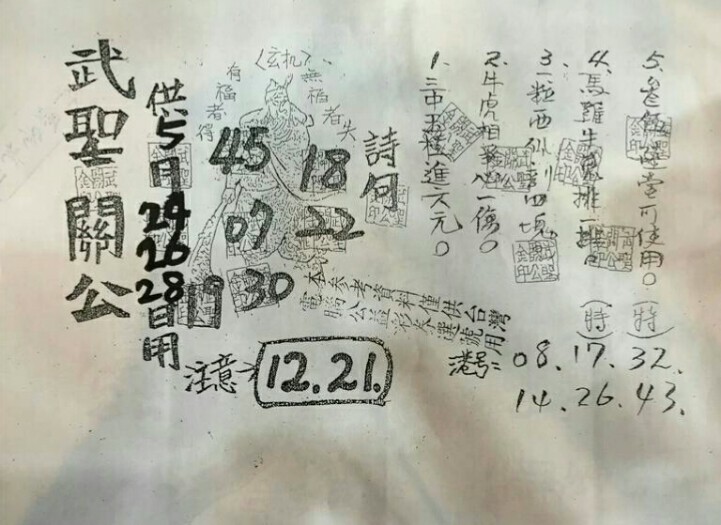 武聖關公
供5月24 26 28日用
〈玄机〉
有福者得
無福者失
45 18
07 22
19 30
詩句
1. 三中五 進六元。
2. 牛虎相 一傷。
3. 一粒西 四塊
4. 馬羅生 排一 (特)
5. 堂可使用。(特)
本參考資料僅供台灣
電腦公益彩券選號用
注意 12.21.
港号: 08. 17. 32.
14. 26. 43.
武聖關公金印